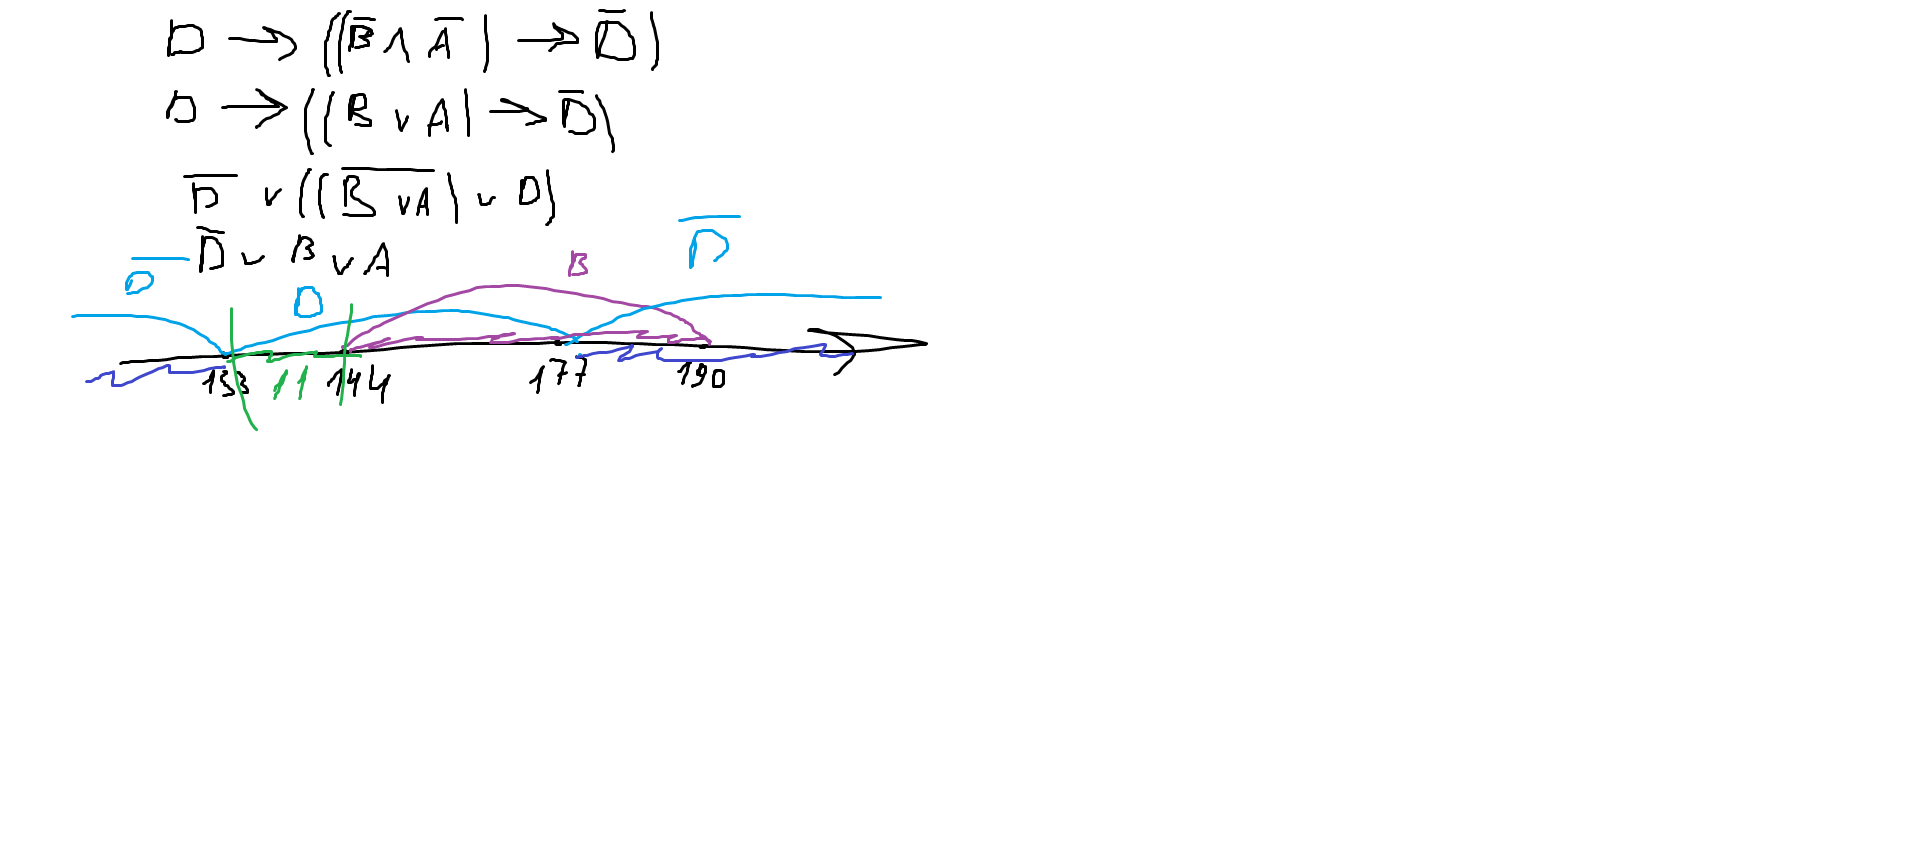 D → ((B̅ ∧ A̅) → D̅)
D → ((B ∨ A) → D̅)
D̅ ∨ ((B̅ ̅∨̅ ̅A̅) ∨ D)
D̅ ∨ B ∨ A
D̅ D B D̅
133 11 144 177 190